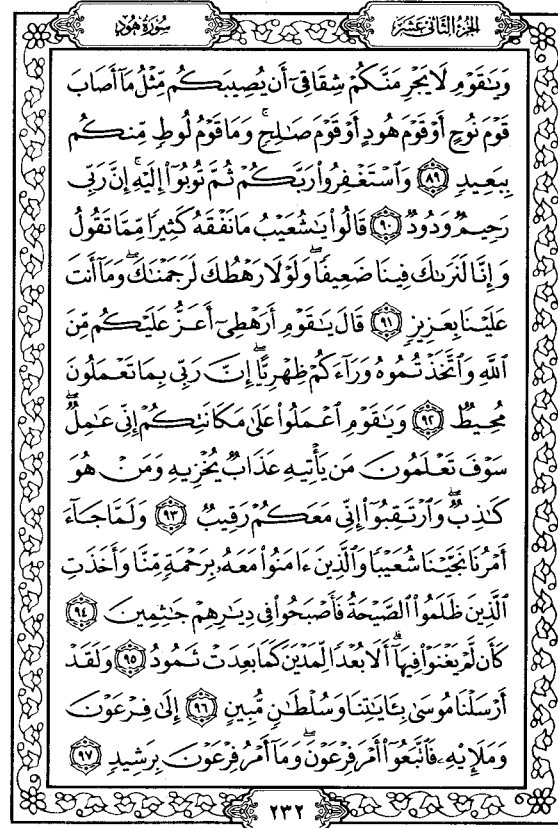 سُورَةُ هُودٍ
الجُزْءُ الثَّانِي عَشَرَ
وَيَـٰقَوْمِ لَا يَجْرِمَنَّكُمْ شِقَاقِىٓ أَن يُصِيبَكُم مِّثْلُ مَآ أَصَابَ
قَوْمَ نُوحٍ أَوْ قَوْمَ هُودٍ أَوْ قَوْمَ صَـٰلِحٍ ۚ وَمَا قَوْمُ لُوطٍ مِّنكُم
بِبَعِيدٍ ٨٩ وَٱسْتَغْفِرُوا۟ رَبَّكُمْ ثُمَّ تُوبُوٓا۟ إِلَيْهِ ۚ إِنَّ رَبِّى
رَحِيمٌ وَدُودٌ ٩٠ قَالُوا۟ يَـٰشُعَيْبُ مَا نَفْقَهُ كَثِيرًا مِّمَّا تَقُولُ
وَإِنَّا لَنَرَىٰكَ فِينَا ضَعِيفًا ۖ وَلَوْلَا رَهْطُكَ لَرَجَمْنَـٰكَ ۖ وَمَآ أَنتَ
عَلَيْنَا بِعَزِيزٍ ٩١ قَالَ يَـٰقَوْمِ أَرَهْطِىٓ أَعَزُّ عَلَيْكُم مِّنَ
ٱللَّهِ وَٱتَّخَذْتُمُوهُ وَرَآءَكُمْ ظِهْرِيًّا ۖ إِنَّ رَبِّى بِمَا تَعْمَلُونَ
مُحِيطٌ ٩٢ وَيَـٰقَوْمِ ٱعْمَلُوا۟ عَلَىٰ مَكَانَتِكُمْ إِنِّى عَـٰمِلٌ ۖ
سَوْفَ تَعْلَمُونَ مَن يَأْتِيهِ عَذَابٌ يُخْزِيهِ وَمَنْ هُوَ
كَـٰذِبٌ ۖ وَٱرْتَقِبُوٓا۟ إِنِّى مَعَكُمْ رَقِيبٌ ٩٣ وَلَمَّا جَآءَ
أَمْرُنَا نَجَّيْنَا شُعَيْبًا وَٱلَّذِينَ ءَامَنُوا۟ مَعَهُۥ بِرَحْمَةٍ مِّنَّا وَأَخَذَتِ
ٱلَّذِينَ ظَلَمُوا۟ ٱلصَّيْحَةُ فَأَصْبَحُوا۟ فِى دِيَـٰرِهِمْ جَـٰثِمِينَ ٩٤
كَأَن لَّمْ يَغْنَوْا۟ فِيهَآ ۗ أَلَا بُعْدًا لِّمَدْيَنَ كَمَا بَعِدَتْ ثَمُودُ ٩٥ وَلَقَدْ
أَرْسَلْنَا مُوسَىٰ بِـَٔايَـٰتِنَا وَسُلْطَـٰنٍ مُّبِينٍ ٩٦ إِلَىٰ فِرْعَوْنَ
وَمَلَإِي۟هِۦ فَٱتَّبَعُوٓا۟ أَمْرَ فِرْعَوْنَ ۖ وَمَآ أَمْرُ فِرْعَوْنَ بِرَشِيدٍ ٩٧
٢٣٢